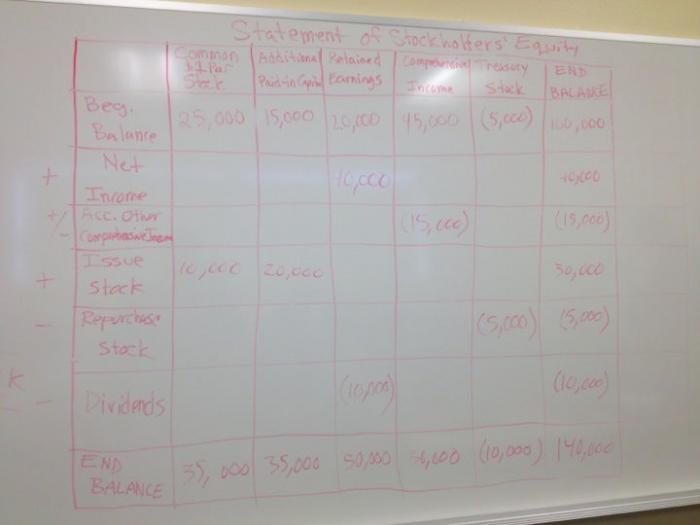 Statement of Stockholders' Equity
Common $1 Par Stock Additional Paid-in Capital Retained Earnings Comprehensive Income Treasury Stock END BALANCE
Beg. Balance 25,000 15,000 20,000 45,000 (5,000) 100,000
+ Net Income 40,000 40,000
+/- Acc. Other Comprehensive Income (15,000) (15,000)
+ Issue Stock 10,000 20,000 30,000
- Repurchase Stock (5,000) (5,000)
K
- Dividends (10,000) (10,000)
END BALANCE 35,000 35,000 50,000 30,000 (10,000) 140,000